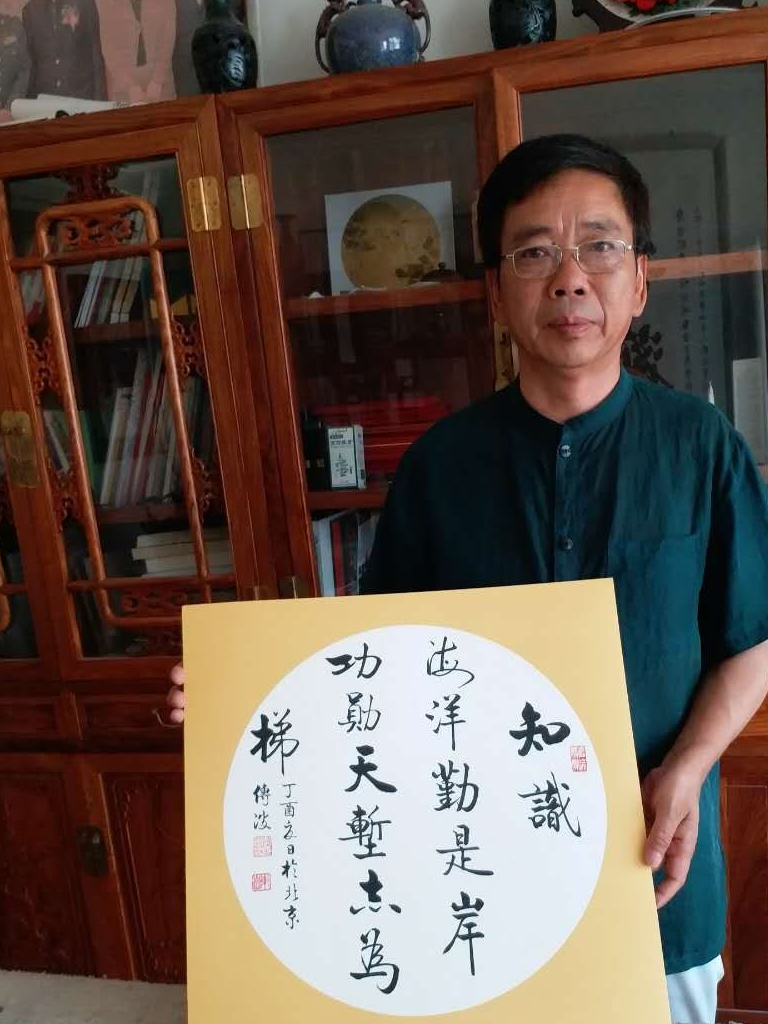 知識
海洋勤是岸
功勛天塹志為
梯
丁酉夏日於北京
傳波